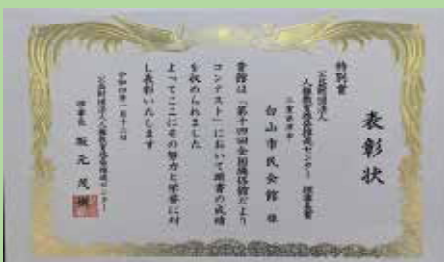 表彰状
特別賞
公益財団法人
人権教育啓発推進センター 理事長賞
三重県津市
白山市民会館 様
貴館は「第十四回全国隣保館だより
コンテスト」において頭書の成績
を収められました
よってここにその努力と栄誉に対
し表彰いたします
令和四年一月十二日
公益財団法人人権教育啓発推進センター
理事長 坂元 茂樹